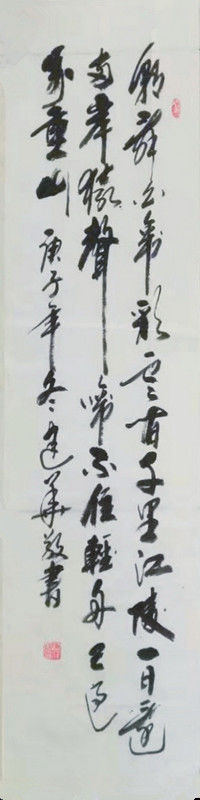 朝辭白帝彩雲間千里江陵一日還
兩岸猿聲啼不住輕舟已過
萬重山 庚子年冬建華敬書